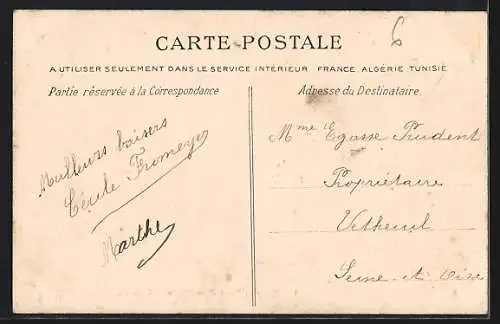 6
CARTE-POSTALE
A UTILISER SEULEMENT DANS LE SERVICE INTÉRIEUR FRANCE, ALGÉRIE TUNISIE
Partie réservée à la Correspondance
Adresse du Destinataire.
Meilleurs baisers
Cécile Fromeyer
Marthe
Mme Egasse Prudent
Propriétaire
Vetheuil
Seine et Oise